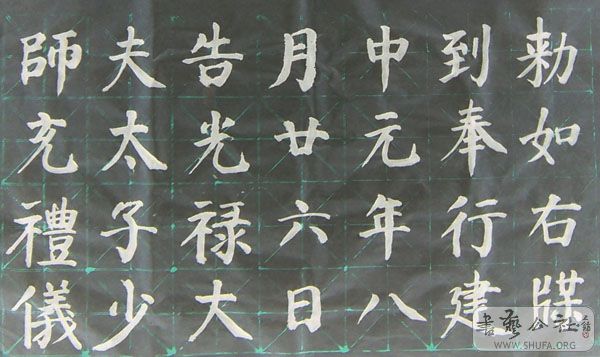 勅如右牒
到奉行建
中元年八
月廿六日
告光禄大
夫太子少
師充禮儀
書藝公社
WWW.SHUFA.ORG